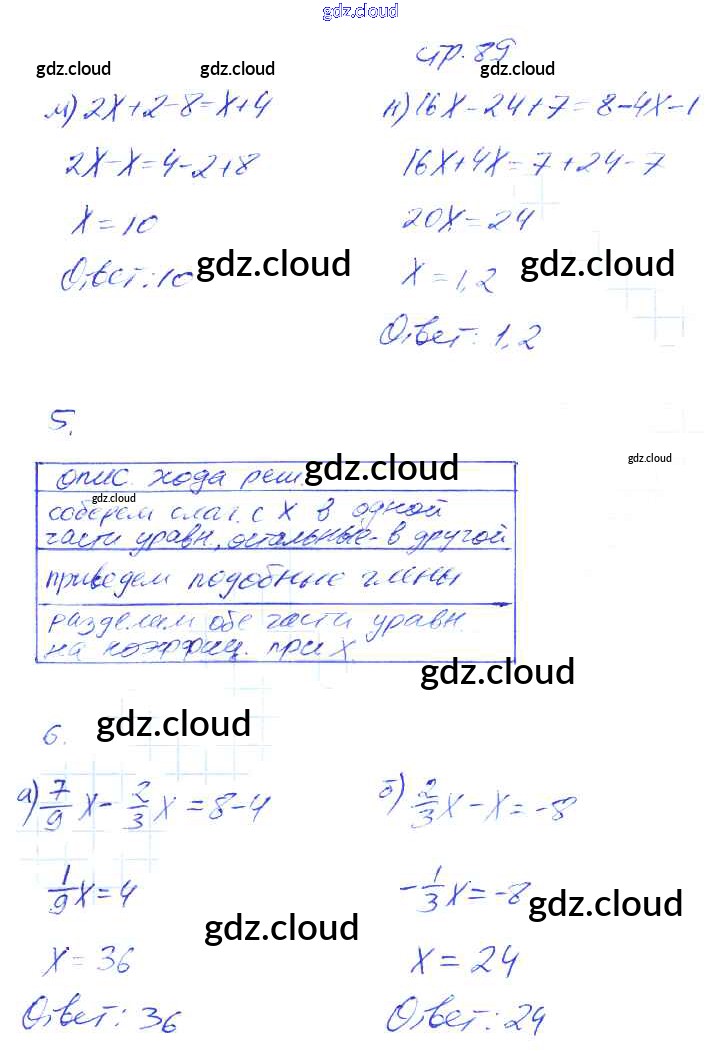 gdz.cloud
стр. 89
gdz.cloud gdz.cloud gdz.cloud
м) 2x+2-8=x+4
2x-x=4-2+8
x=10
Ответ: 10 gdz.cloud
н) 16x-24+7=8-4x-1
16x+4x=7+24-7
20x=24
x=1,2 gdz.cloud
Ответ: 1,2
5.
gdz.cloud
опис. хода реш. gdz.cloud
gdz.cloud
соберем слаг. с x в одной
части уравн., остальные - в другой
приведем подобные члены
разделим обе части уравн.
на коэффиц. при x
gdz.cloud
6. gdz.cloud
а) 7/9 x - 2/3 x = 8-4
1/9 x = 4
gdz.cloud
x = 36
Ответ: 36
б) 2/3 x - x = -8
-1/3 x = -8 gdz.cloud
x = 24
Ответ: 24